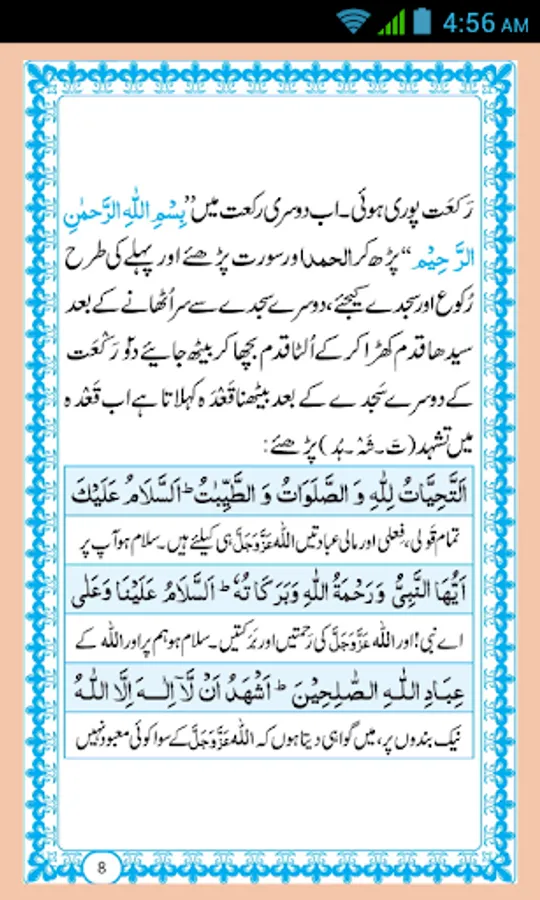 4:56 AM
رَکعَت پوری ہوئی۔ اب دوسری رکعت میں ”بِسْمِ اللّٰہِ الرَّحْمٰنِ
الرَّحِیْم“ پڑھ کر الحمد اور سورت پڑھئے اور پہلے کی طرح
رُکوع اور سجدے کیجئے، دوسرے سجدے سے سر اُٹھانے کے بعد
سیدھا قدم کھڑا کر کے اُلٹا قدم بچھا کر بیٹھ جائیے دو رَکْعَت
کے دوسرے سَجدے کے بعد بیٹھنا قَعْدَہ کہلاتا ہے اب قَعْدہ
میں تشہد (تَ۔ شَہْ۔ ہُد) پڑھئے:
اَلتَّحِیَّاتُ لِلّٰہِ وَ الصَّلَوَاتُ وَ الطَّیِّبٰتُ ؕ اَلسَّلَامُ عَلَیْكَ
تمام قَولی، فِعلی اور مالی عبادتیں اللہ عَزَّوَجَلَّ ہی کیلئے ہیں۔ سلام ہو آپ پر
اَیُّھَا النَّبِیُّ وَرَحْمَةُ اللّٰہِ وَبَرَکَاتُہٗ ؕ اَلسَّلَامُ عَلَیْنَا وَعَلٰی
اے نبی! اور اللہ عَزَّوَجَلَّ کی رَحمتیں اور بَرَکتیں۔ سلام ہو ہم پر اور اللہ کے
عِبَادِ اللّٰہِ الصّٰلِحِیْنَ ؕ اَشْھَدُ اَنْ لَّاۤ اِلٰـہَ اِلَّا اللّٰہُ
نیک بندوں پر، میں گواہی دیتا ہوں کہ اللہ عَزَّوَجَلَّ کے سوا کوئی معبود نہیں
8